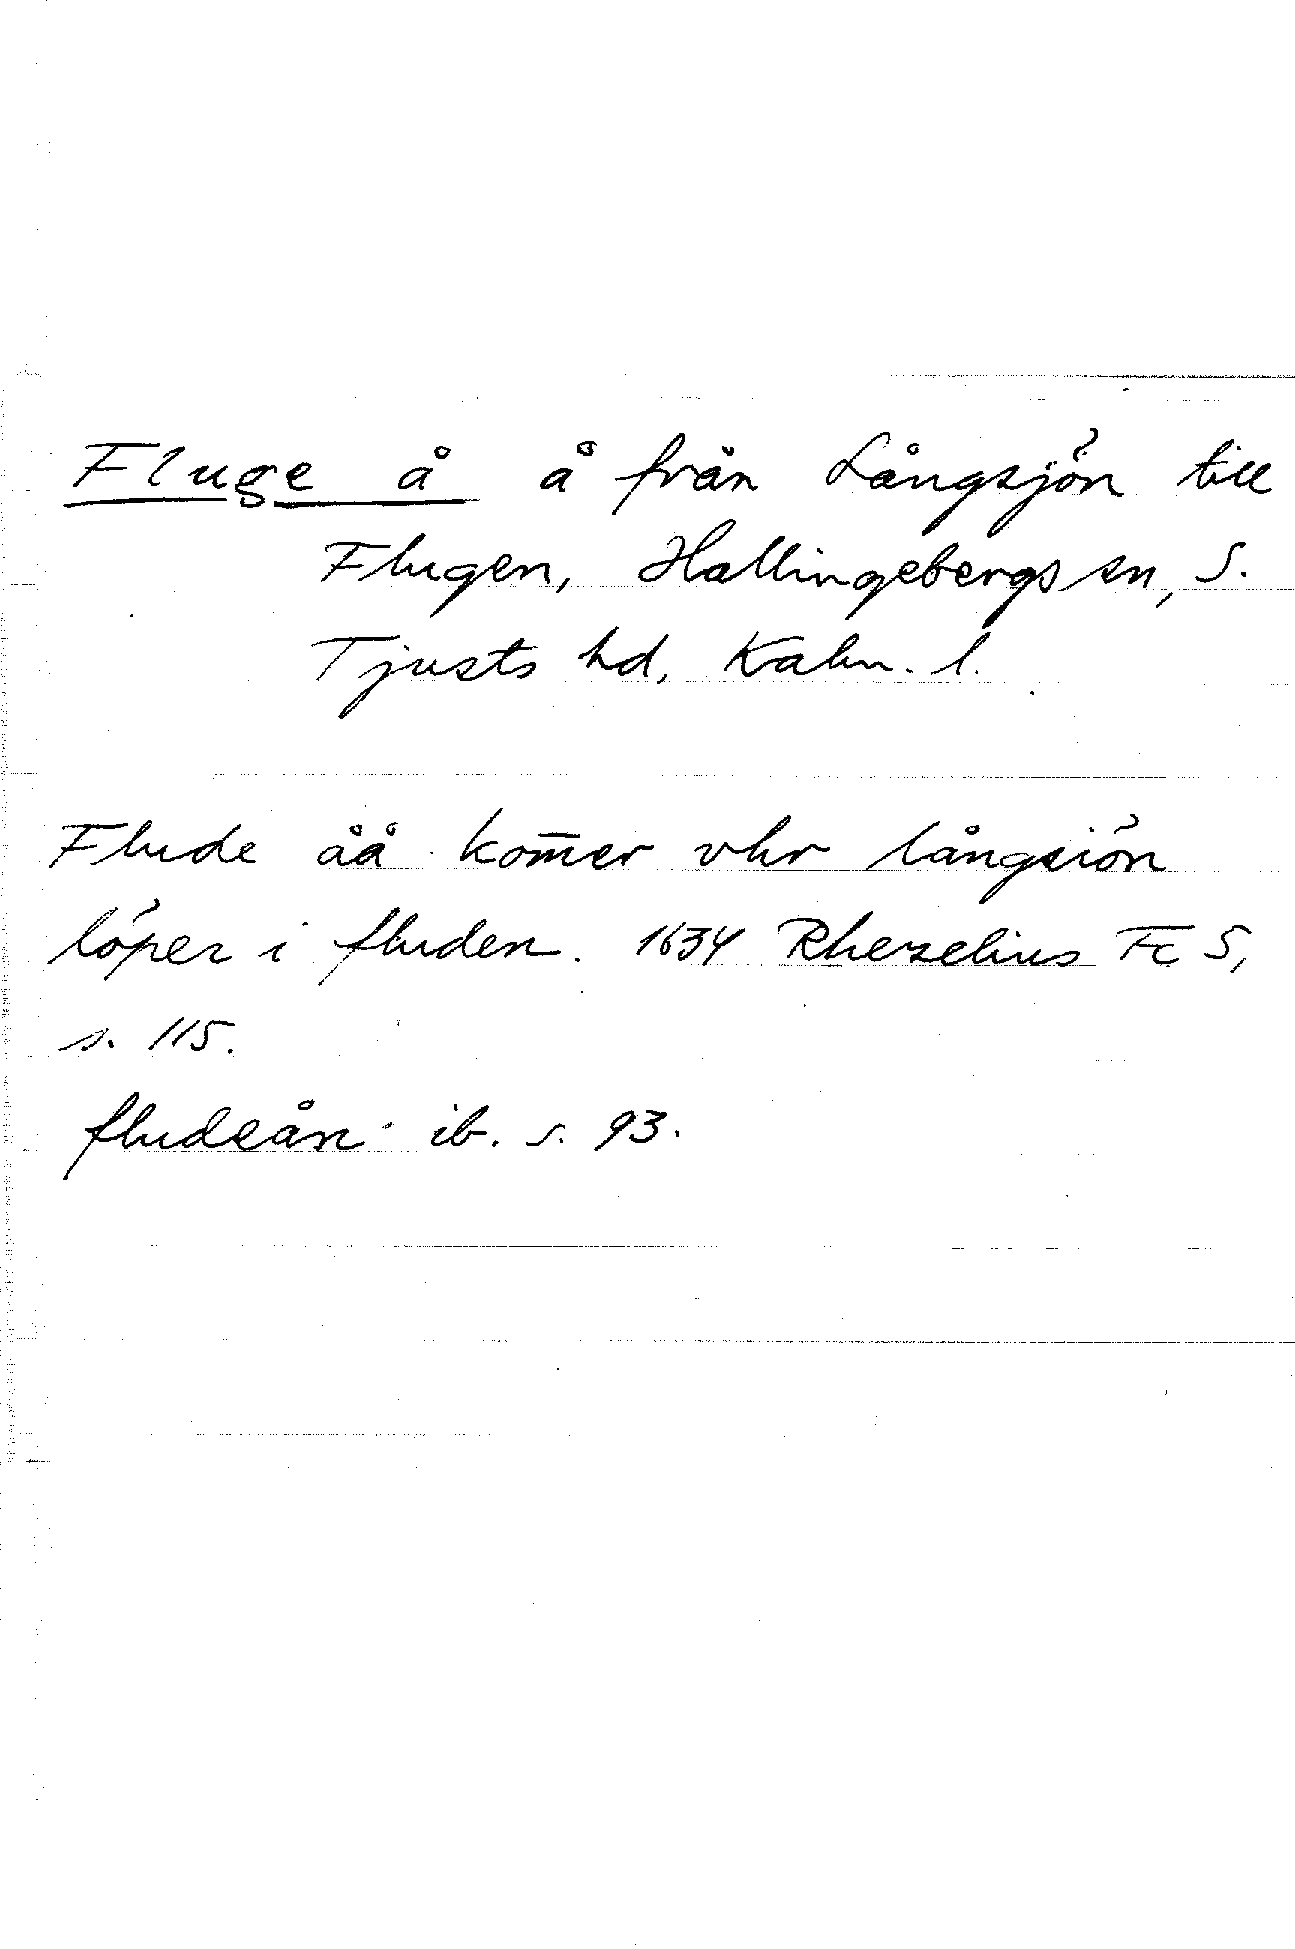 Fluge å å från Långsjön till
Flugen, Hallingebergs sn, S.
Tjusts hd, Kalm. l.
Flude åå kom̄er vhr långsiön
löper i fluden. 1634 Rhezelius Fc 5,
s. 115.
fludeån ib. s. 93.